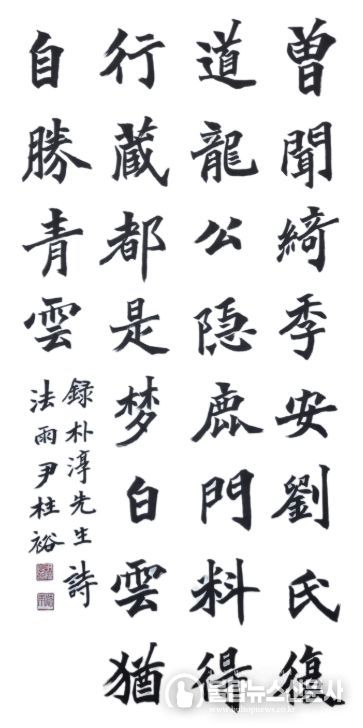 曾聞綺季安劉氏復
道龍公隐鹿門料得
行藏都是梦白雲猶
自勝青雲
録朴淳先生詩
法雨尹柱裕